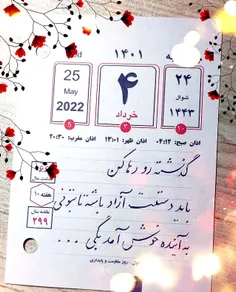 ۱۴۰۱
25
May
2022
۴
خرداد
۲۴
شوال
۱۴۴۳
اذان صبح: ۰۴:۱۲
اذان ظهر: ۱۳:۰۱
اذان مغرب: ۲۰:۳۰
گذشته رو رها کن
باید دستت آزاد باشه تا بتونی
به آینده خوش آمد بگی ...
هفته ۱۰
مانده سال
۲۹۹
روز مقاومت و پایداری